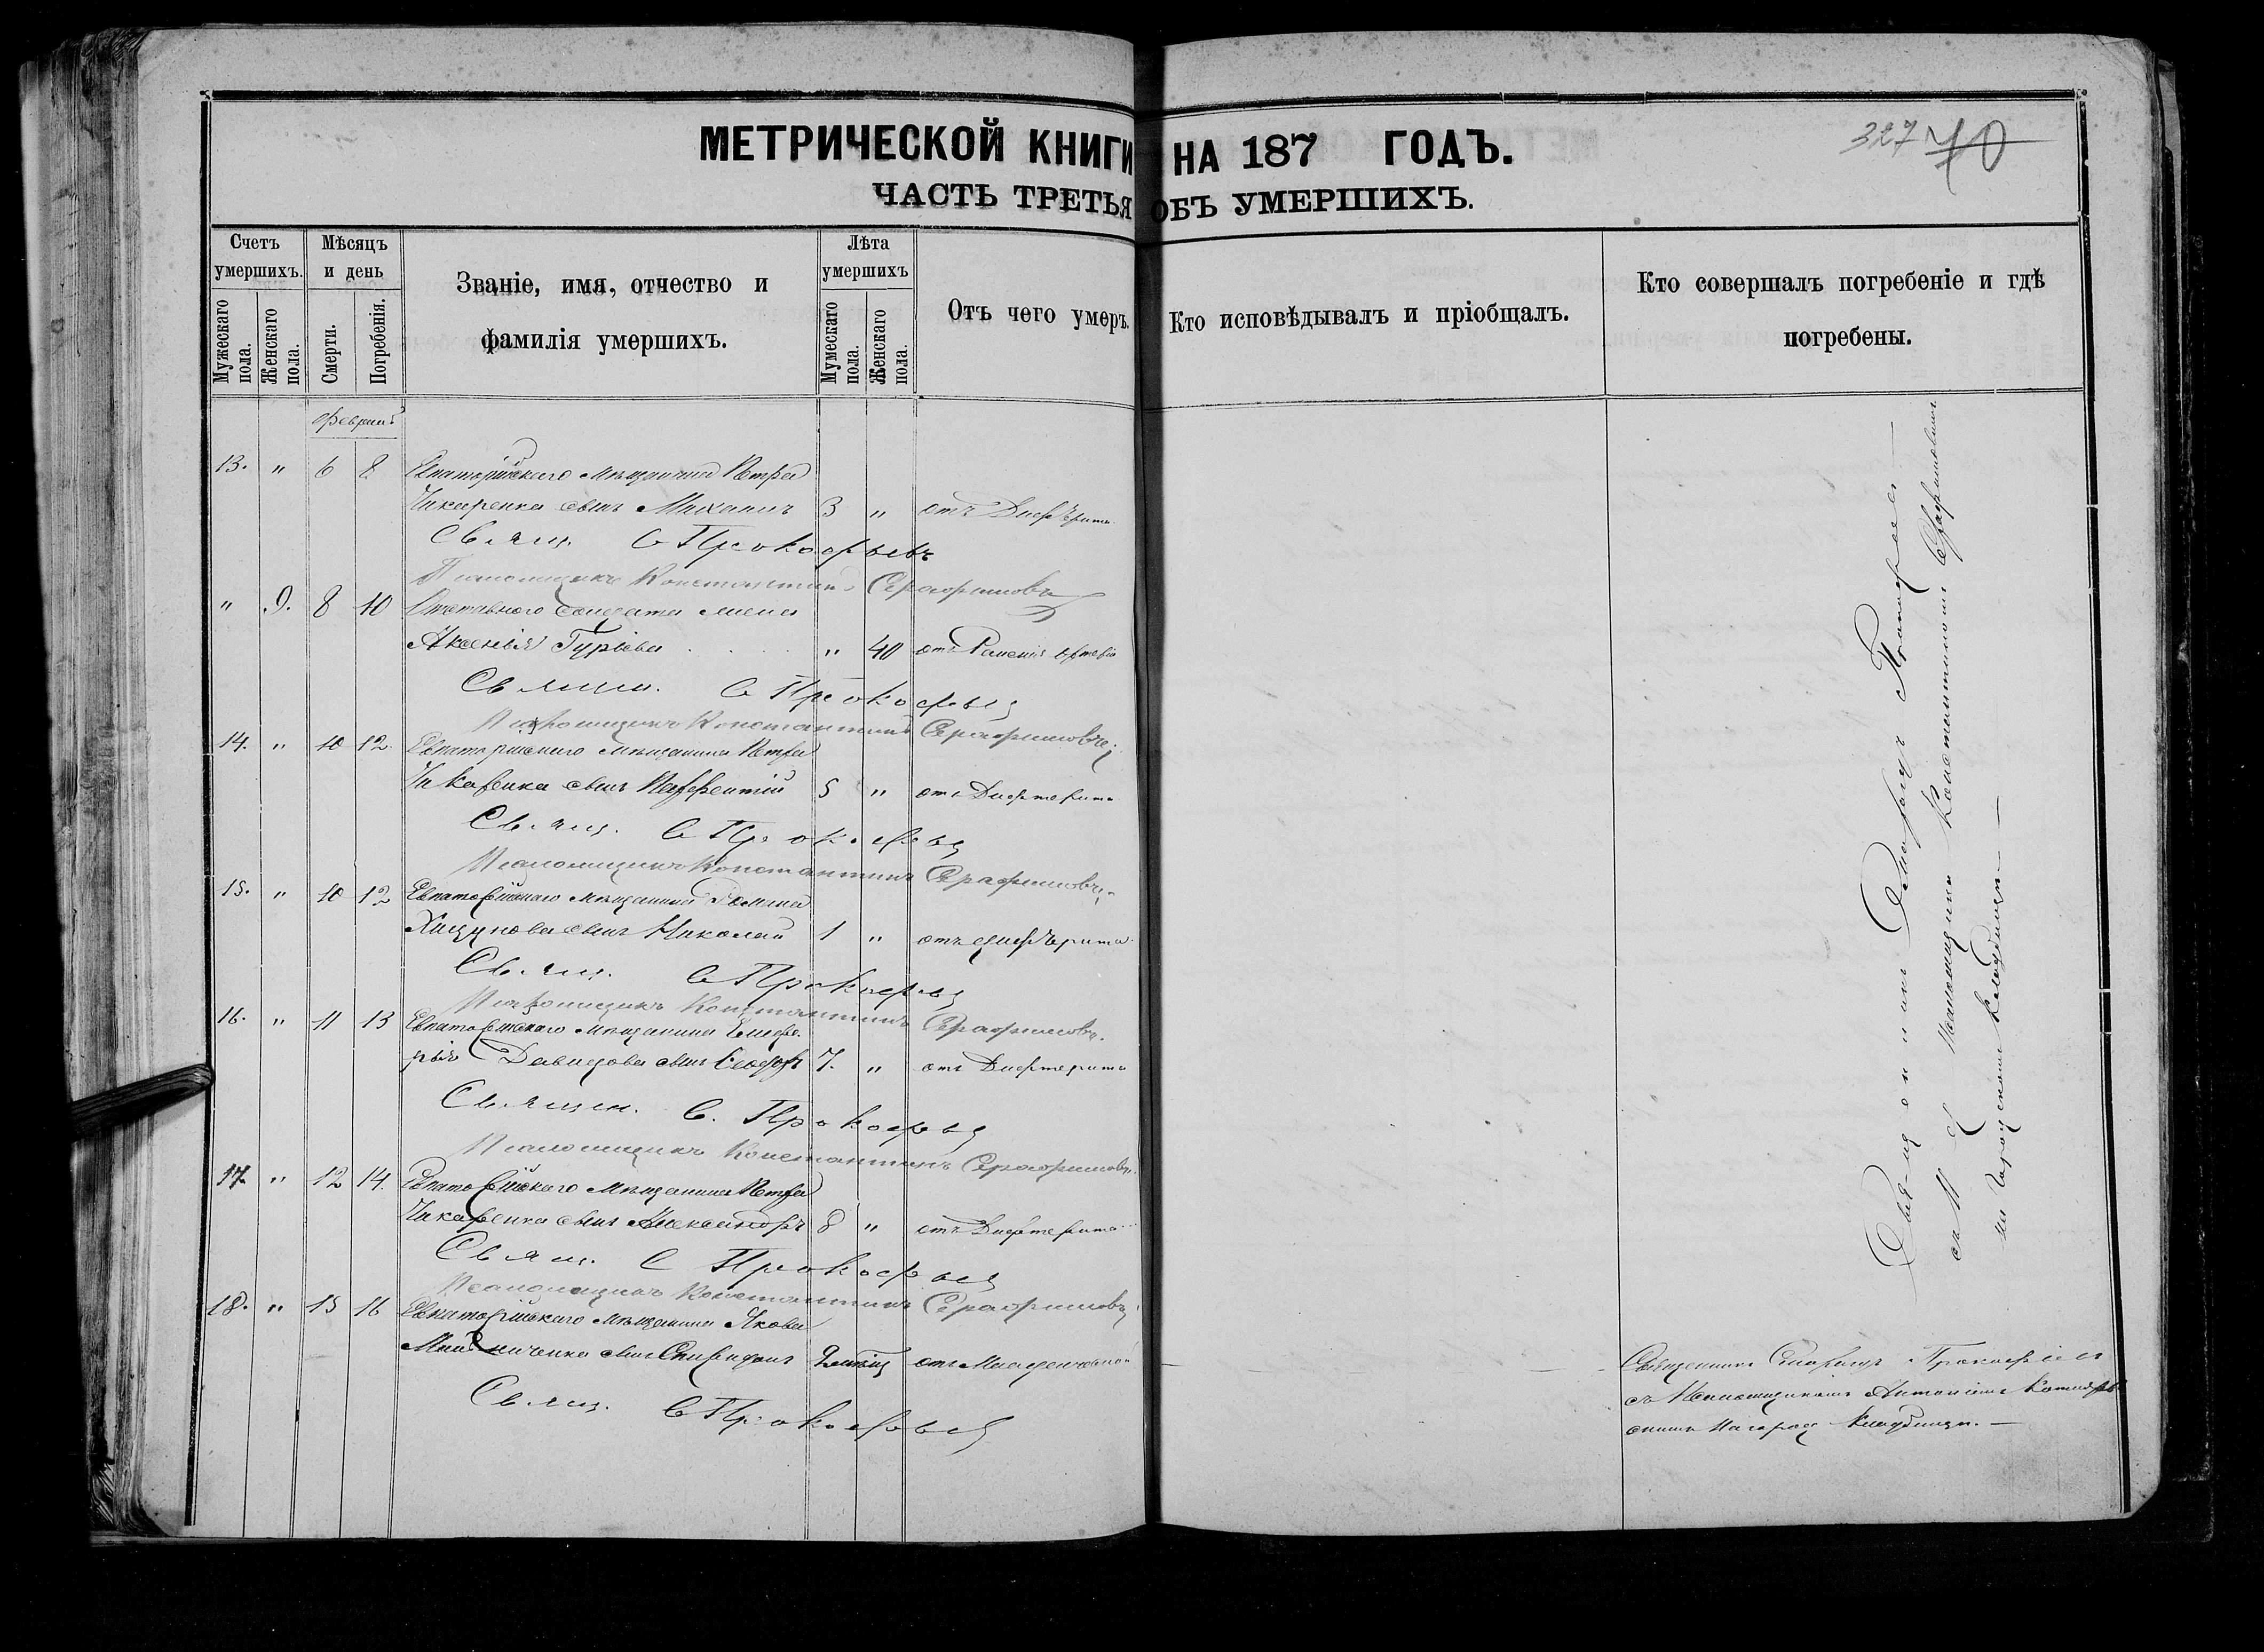 МЕТРИЧЕСКОЙ КНИГИ НА 187 ГОДЪ.
ЧАСТЬ ТРЕТЬЯ ОБЪ УМЕРШИХЪ.
327 70
Счетъ умершихъ.
Мужескаго пола.
Женскаго пола.
Мѣсяцъ и день
Смерти.
Погребенія.
Званіе, имя, отчество и фамилія умершихъ.
Лѣта умершихъ
Мужескаго пола.
Женскаго пола.
Отъ чего умеръ.
Кто исповѣдывалъ и пріобщалъ.
Кто совершалъ погребеніе и гдѣ погребены.
Февраль
13. " 6 8 Евпаторійскаго мѣщанина Петра
Чикаренка сынъ Михаилъ 3 " отъ Дифтерита
Свящ. С Прокофьевъ
Псаломщикъ Константинъ Серафимовъ
" 9. 8 10 Отставнаго солдата жена
Аксенія Гурьева " 40 отъ
Священ. С Прокофьевъ
Псаломщикъ Константинъ Серафимовъ
14. " 10 12 Евпаторійскаго мѣщанина Петра
Чикаренка сынъ 5 " отъ Дифтерита
Свящ. С Прокофьевъ
Псаломщикъ Константинъ Серафимовъ
15. " 10 12 Евпаторійскаго мѣщанина
сынъ Николай 1 " отъ дифтерита
Свящ. С Прокофьевъ
Псаломщикъ Константинъ Серафимовъ
16. " 11 13 Евпаторійскаго мѣщанина
Давидова сынъ 7. " отъ Дифтерита
Священ. С. Прокофьевъ
Псаломщикъ Константинъ Серафимовъ
17. " 12 14. Евпаторійскаго мѣщанина Петра
Чикаренка сынъ Александръ 8 " отъ Дифтерита
Свящ. С Прокофьевъ
Псаломщикъ Константинъ Серафимовъ
18. " 15 16 Евпаторійскаго мѣщанина Якова
сынъ Спиридонъ отъ
Свящ. С Прокофьевъ
Священникъ Прокофьев
съ Псаломщикомъ Константиномъ Серафимовымъ
на городскомъ кладбищѣ —
Священникъ Прокофьев
съ Псаломщикомъ Антоніемъ
на город кладбищѣ. —